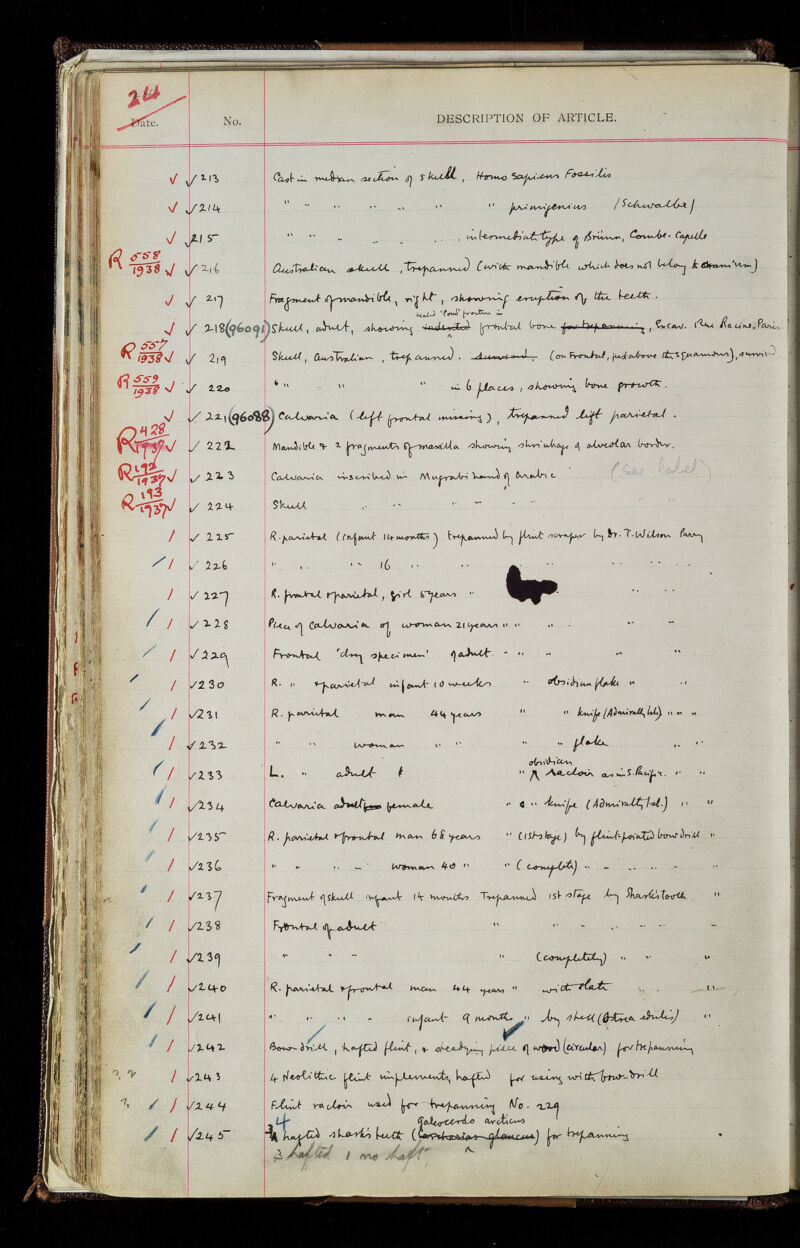 214
Date. No. DESCRIPTION OF ARTICLE.
✓ ✓ 213 Cast in median section of skull, Homo Sapiens Fossilis
✓ ✓ 214 " " " " " " " primigenius (Schwalbe)
✓ ✓ 215 " " " intermediate type of Brünn, Combe-Capelle
R 558/1938 ✓ ✓ 216 Australian skull, trepanned (with mandible which does not belong to cranium)
✓ ✓ 217 Fragment of mandible, right, showing eruption of the teeth.
healed 'Pond' fracture in
✓ ✓ 218 (96091) Skull, adult, showing indented frontal bone for trepanning, Excav. Rue Racine, Paris
R 557/1938 ✓ ✓ 219 Skull, Australian, trepanned. (on Frontal, just above the squamous), survived
R 559/1938 ✓ ✓ 220 " " " " in 6 places, showing bone growth.
✓ ✓ 221 (96088) Calvaria (left frontal missing), trepanned left parietal.
R 428/1937 ✓ ✓ 222 Mandible & 2 fragments of maxilla showing shrinkage of alveolar border.
R 192/1937 ✓ ✓ 223 Calvaria inscribed in Mugrabi hand of Arabic (see label)
R 193/1937 ✓ ✓ 224 Skull " " " " " "
/ ✓ 225 R. parietal (infant 14 months) trepanned by flint scraper by Dr. T. Wilson Parry
/ / ✓ 226 " " " 16 " " " " "
/ ✓ 227 R. frontal & parietal, girl 5 years " " "
/ / ✓ 228 Piece of calvaria of woman 21 years " " " " "
/ / ✓ 229 Frontal 'dry specimen' of adult " " " " "
/ / ✓ 230 R. " & parietal infant 10 weeks " obsidian flake " "
/ / ✓ 231 R. parietal man 44 years " " knife (Admiralty Isl.) " " "
/ / ✓ 232 " " woman " " " " flake " "
obsidian
/ / ✓ 233 L. " adult " racloir as in S. Pacific. " "
/ / ✓ 234 Calvaria adult female " " knife (Admiralty Isl.) " "
/ / ✓ 235 R. parietal & frontal man 68 years " (1st stage) by flint-pointed bow drill "
/ / ✓ 236 " " " " woman 40 " " (complete) " " " " "
/ / ✓ 237 Fragment of skull infant 14 months Trepanned 1st stage by Shark's tooth "
/ / ✓ 238 Frontal of adult " " " " " "
/ / ✓ 239 " " " " (completely) " " "
/ / ✓ 240 R. parietal & frontal man 44 years " with slate " "
/ / ✓ 241 " " " " infant 9 months " by shell (Ostrea edulis) "
/ / ✓ 242 Bow-drill, hafted flint, & steadying piece of wood (circular) for trepanning
? ? / ✓ 243 4 Neolithic flint implements, hafted for using with bow-drill
? / / ✓ 244 Flint racloir used for trepanning No. 229
4 galeocerdo arcticus
/ / ✓ 245 hafted shark's teeth (Carcharias glaucus) for trepanning
3 hafted 1 no haft